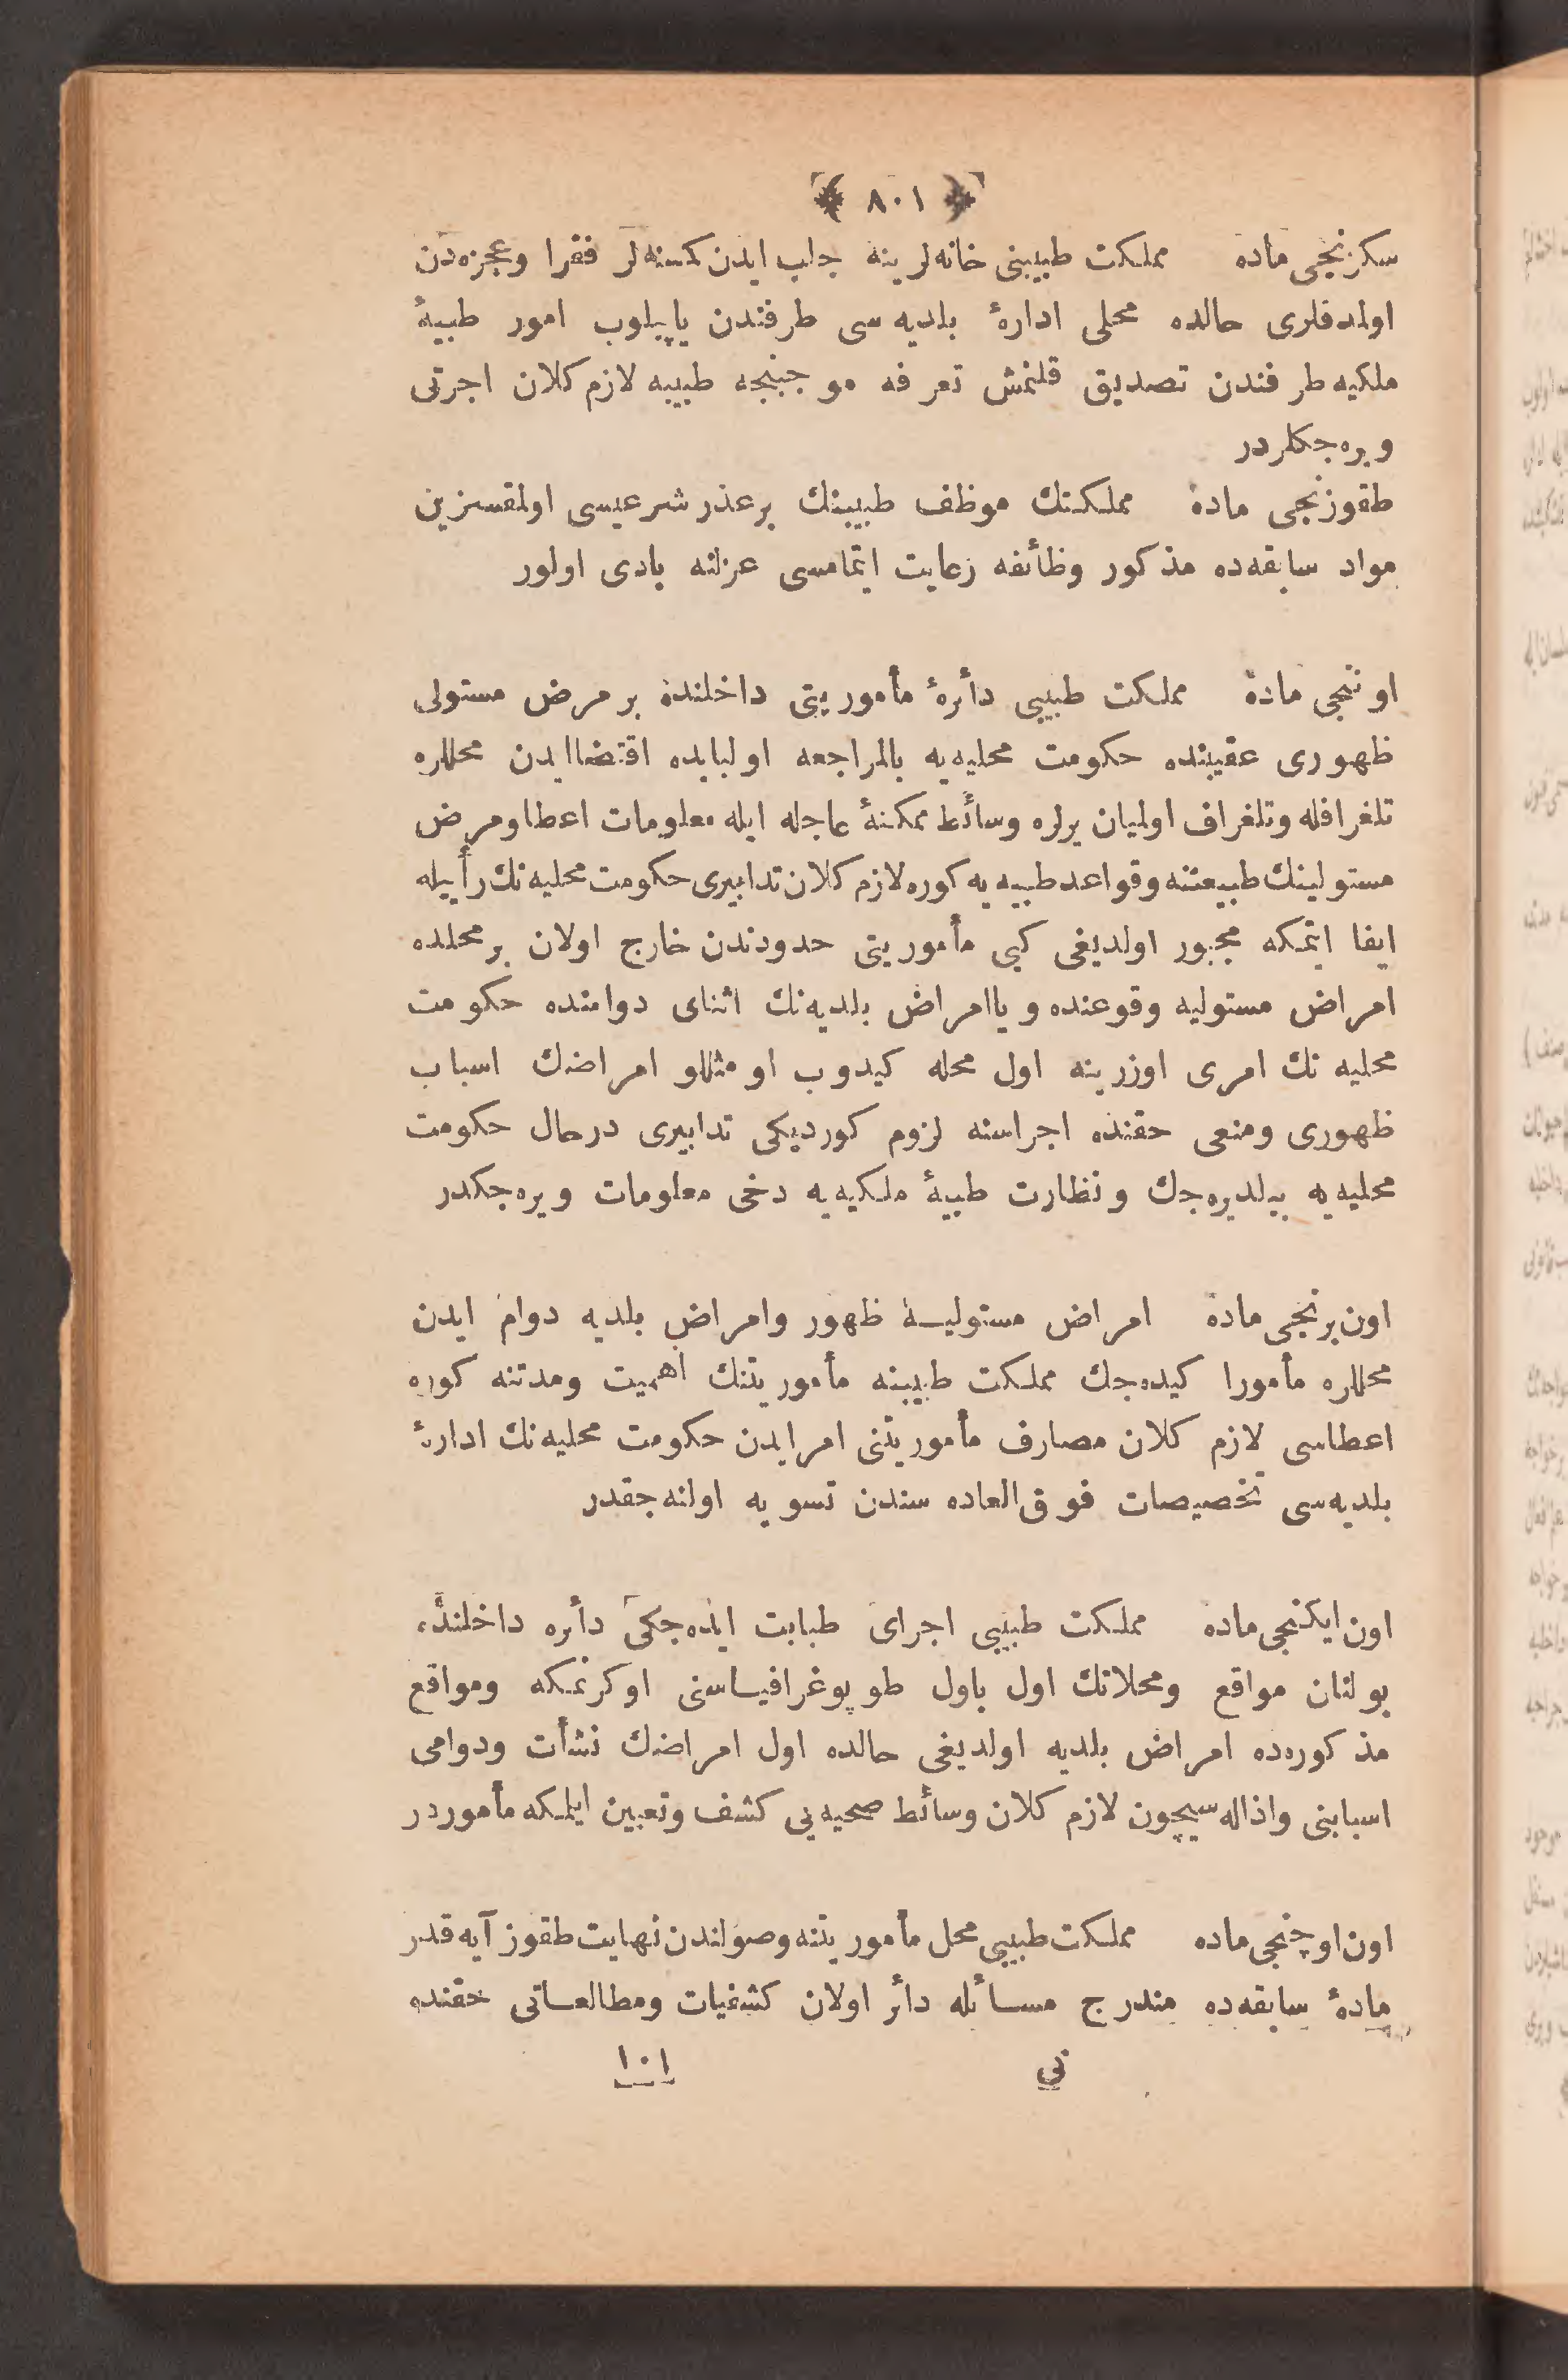 ﴿ ٨٠١ ﴾
سکزنجی ماده مملکت طبیبنی خانه‌لرینه جلب ایدن کمسنه‌لر فقرا وعجزه‌دن
اولمدقلری حالده محلی ادارهٔ بلدیه‌سی طرفندن یاپیلوب امور طبیهٔ
ملکیه طرفندن تصدیق قلنمش تعرفه موجبنجه طبیبه لازم کلان اجرتی
ویره‌جکلردر
طقوزنجی ماده مملکتك موظف طبیبنك برعذر شرعیسی اولمقسزین
مواد سابقه‌ده مذکور وظائفه رعایت ایتمامسی عزلنه بادی اولور
اوننجی ماده مملکت طبیبی دائرهٔ مأموریتی داخلنده بر مرض مستولی
ظهوری عقیبنده حکومت محلیه‌یه بالمراجعه اولبابده اقتضاایدن محللره
تلغرافله وتلغراف اولمیان یرلره وسائط ممکنهٔ عاجله ایله معلومات اعطا ومرض
مستولینك طبیعتنه وقواعد طبیه‌یه کوره لازم کلان تدابیری حکومت محلیه‌نك رأییله
ایفا ایتمکه مجبور اولدیغی کبی مأموریتی حدودندن خارج اولان بر محلده
امراض مستولیه وقوعنده ویاامراض بلدیه‌نك اثنای دوامنده حکومت
محلیه نك امری اوزرینه اول محله کیدوب اومثللو امراضك اسباب
ظهوری ومنعی حقنده اجراسنه لزوم کوردیکی تدابیری درحال حکومت
محلیه‌یه بیلدیره‌جك ونظارت طبیهٔ ملکیه‌یه دخی معلومات ویره‌جکدر
اون‌برنجی ماده امراض مستولیـهٔ ظهور وامراض بلدیه دوام ایدن
محللره مأمورا کیده‌جك مملکت طبیبنه مأموریتنك اهمیت ومدتنه کوره
اعطاسی لازم کلان مصارف مأموریتنی امرایدن حکومت محلیه‌نك ادارهٔ
بلدیه‌سی تخصیصات فوق‌العاده سندن تسویه اولنه‌جقدر
اون‌ایکنجی ماده مملکت طبیبی اجرای طبابت ایده‌جکی دائره داخلنده
بولنان مواقع ومحلاتك اول باول طوپوغرافیاسنی اوکرنمکه ومواقع
مذکوره‌ده امراض بلدیه اولدیغی حالده اول امراضك نشأت ودوامی
اسبابنی واذاله‌سیچون لازم کلان وسائط صحیه‌یی کشف وتعیین ایلمکه مأموردر
اون‌اوچنجی ماده مملکت طبیبی محل مأموریتنه وصولندن نهایت طقوز آیه قدر
مادهٔ سابقه‌ده مندرج مسـائله دائر اولان کشفیات ومطالعـاتی حقنده
نی ١٠١